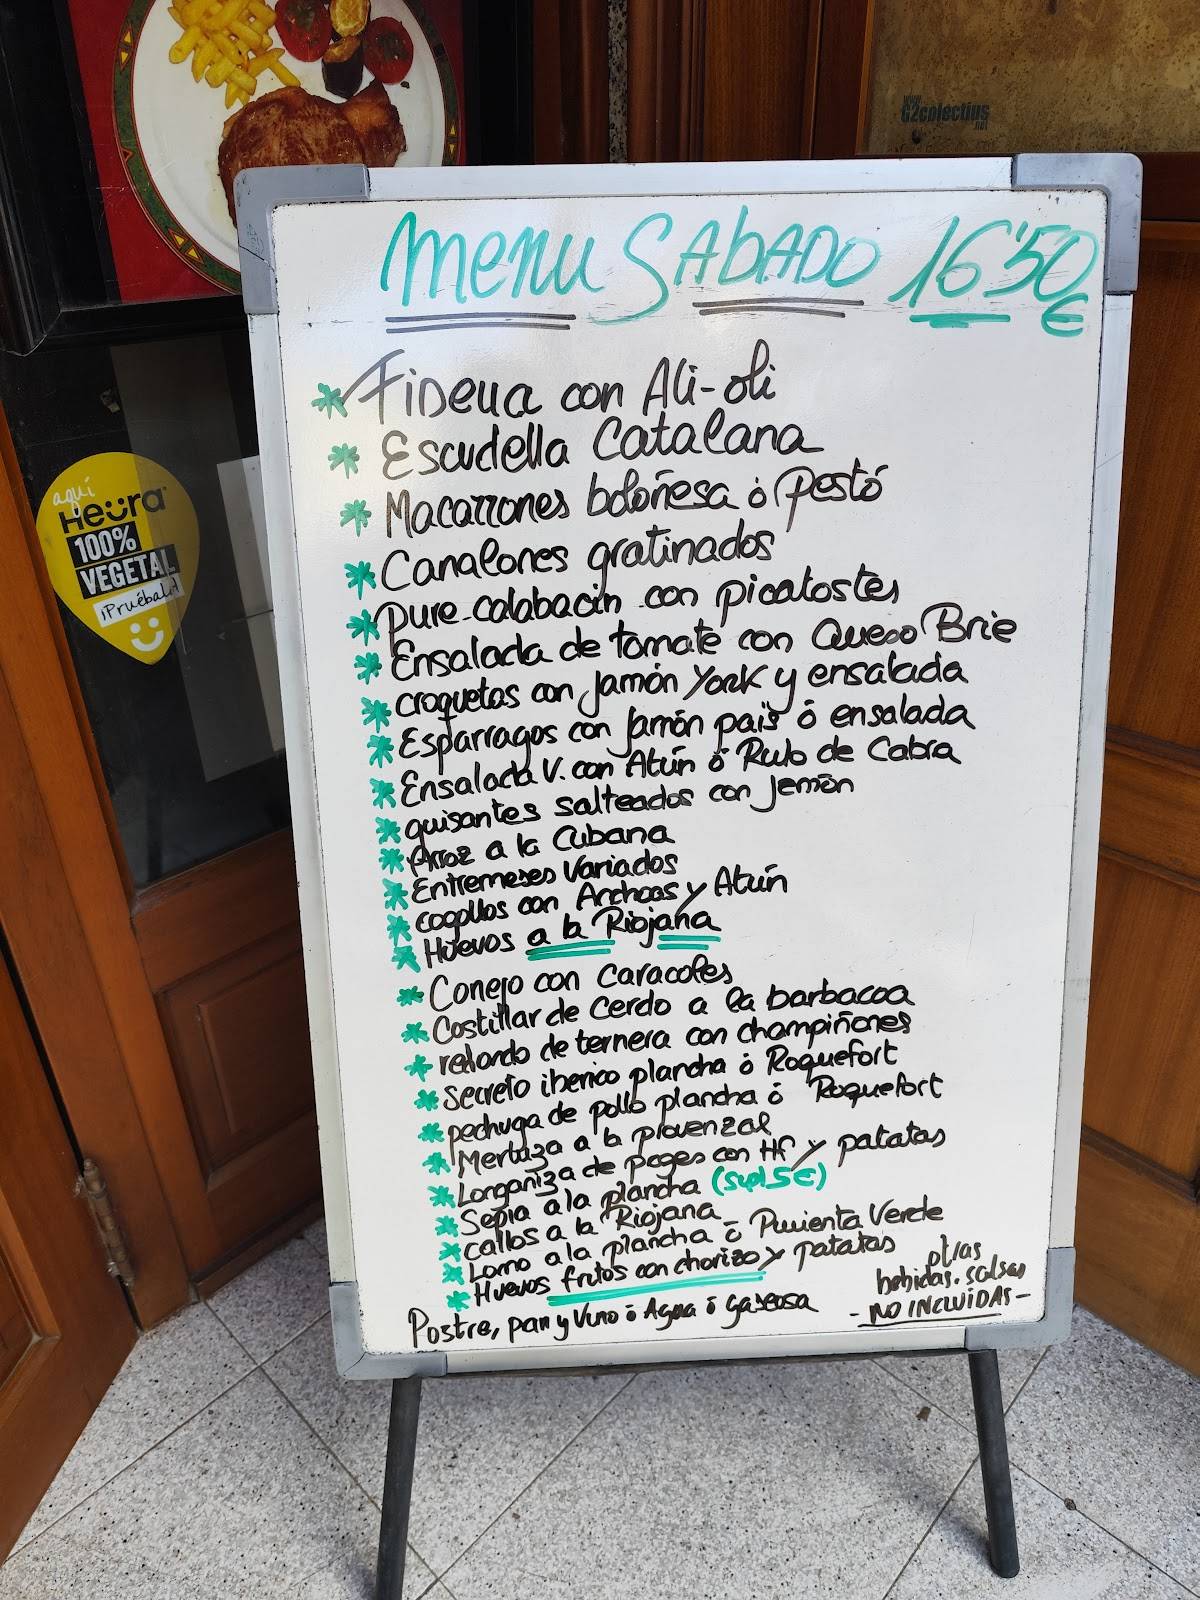 www.
G2colectius
.net
MENU SABADO 16'50 €
aquí
Heüra
100%
VEGETAL
¡Pruébalo!
* Fideua con Ali-oli
* Escudella Catalana
* Macarrones boloñesa ó Pestó
* Canalones gratinados
* pure calabacin con picatostes
* Ensalada de tomate con Queso Brie
* croquetas con Jamón York y ensalada
* Esparragos con Jamón païs ó ensalada
* Ensalada V. con Atún ó Rulo de Cabra
* guisantes salteados con Jamón
* Arroz a la Cubana
* Entremeses Variados
* cogollos con Anchoas y Atún
* Huevos a la Riojana
* Conejo con Caracoles
* Costillar de Cerdo a la barbacoa
* redondo de ternera con champiñones
* Secreto iberico plancha ó Roquefort
* pechuga de pollo plancha ó Roquefort
* Merluza a la provenzal
* Longañiza de pages con HF y patatas
* Sepia a la plancha (supl 5€)
* Callos a la Riojana
* Lomo a la plancha ó Pimienta Verde
* Huevos fritos con chorizo y patatas
Postre, pan y Vino ó Agua ó gaseosa
otras
bebidas. salsas
- NO INCLUIDAS -